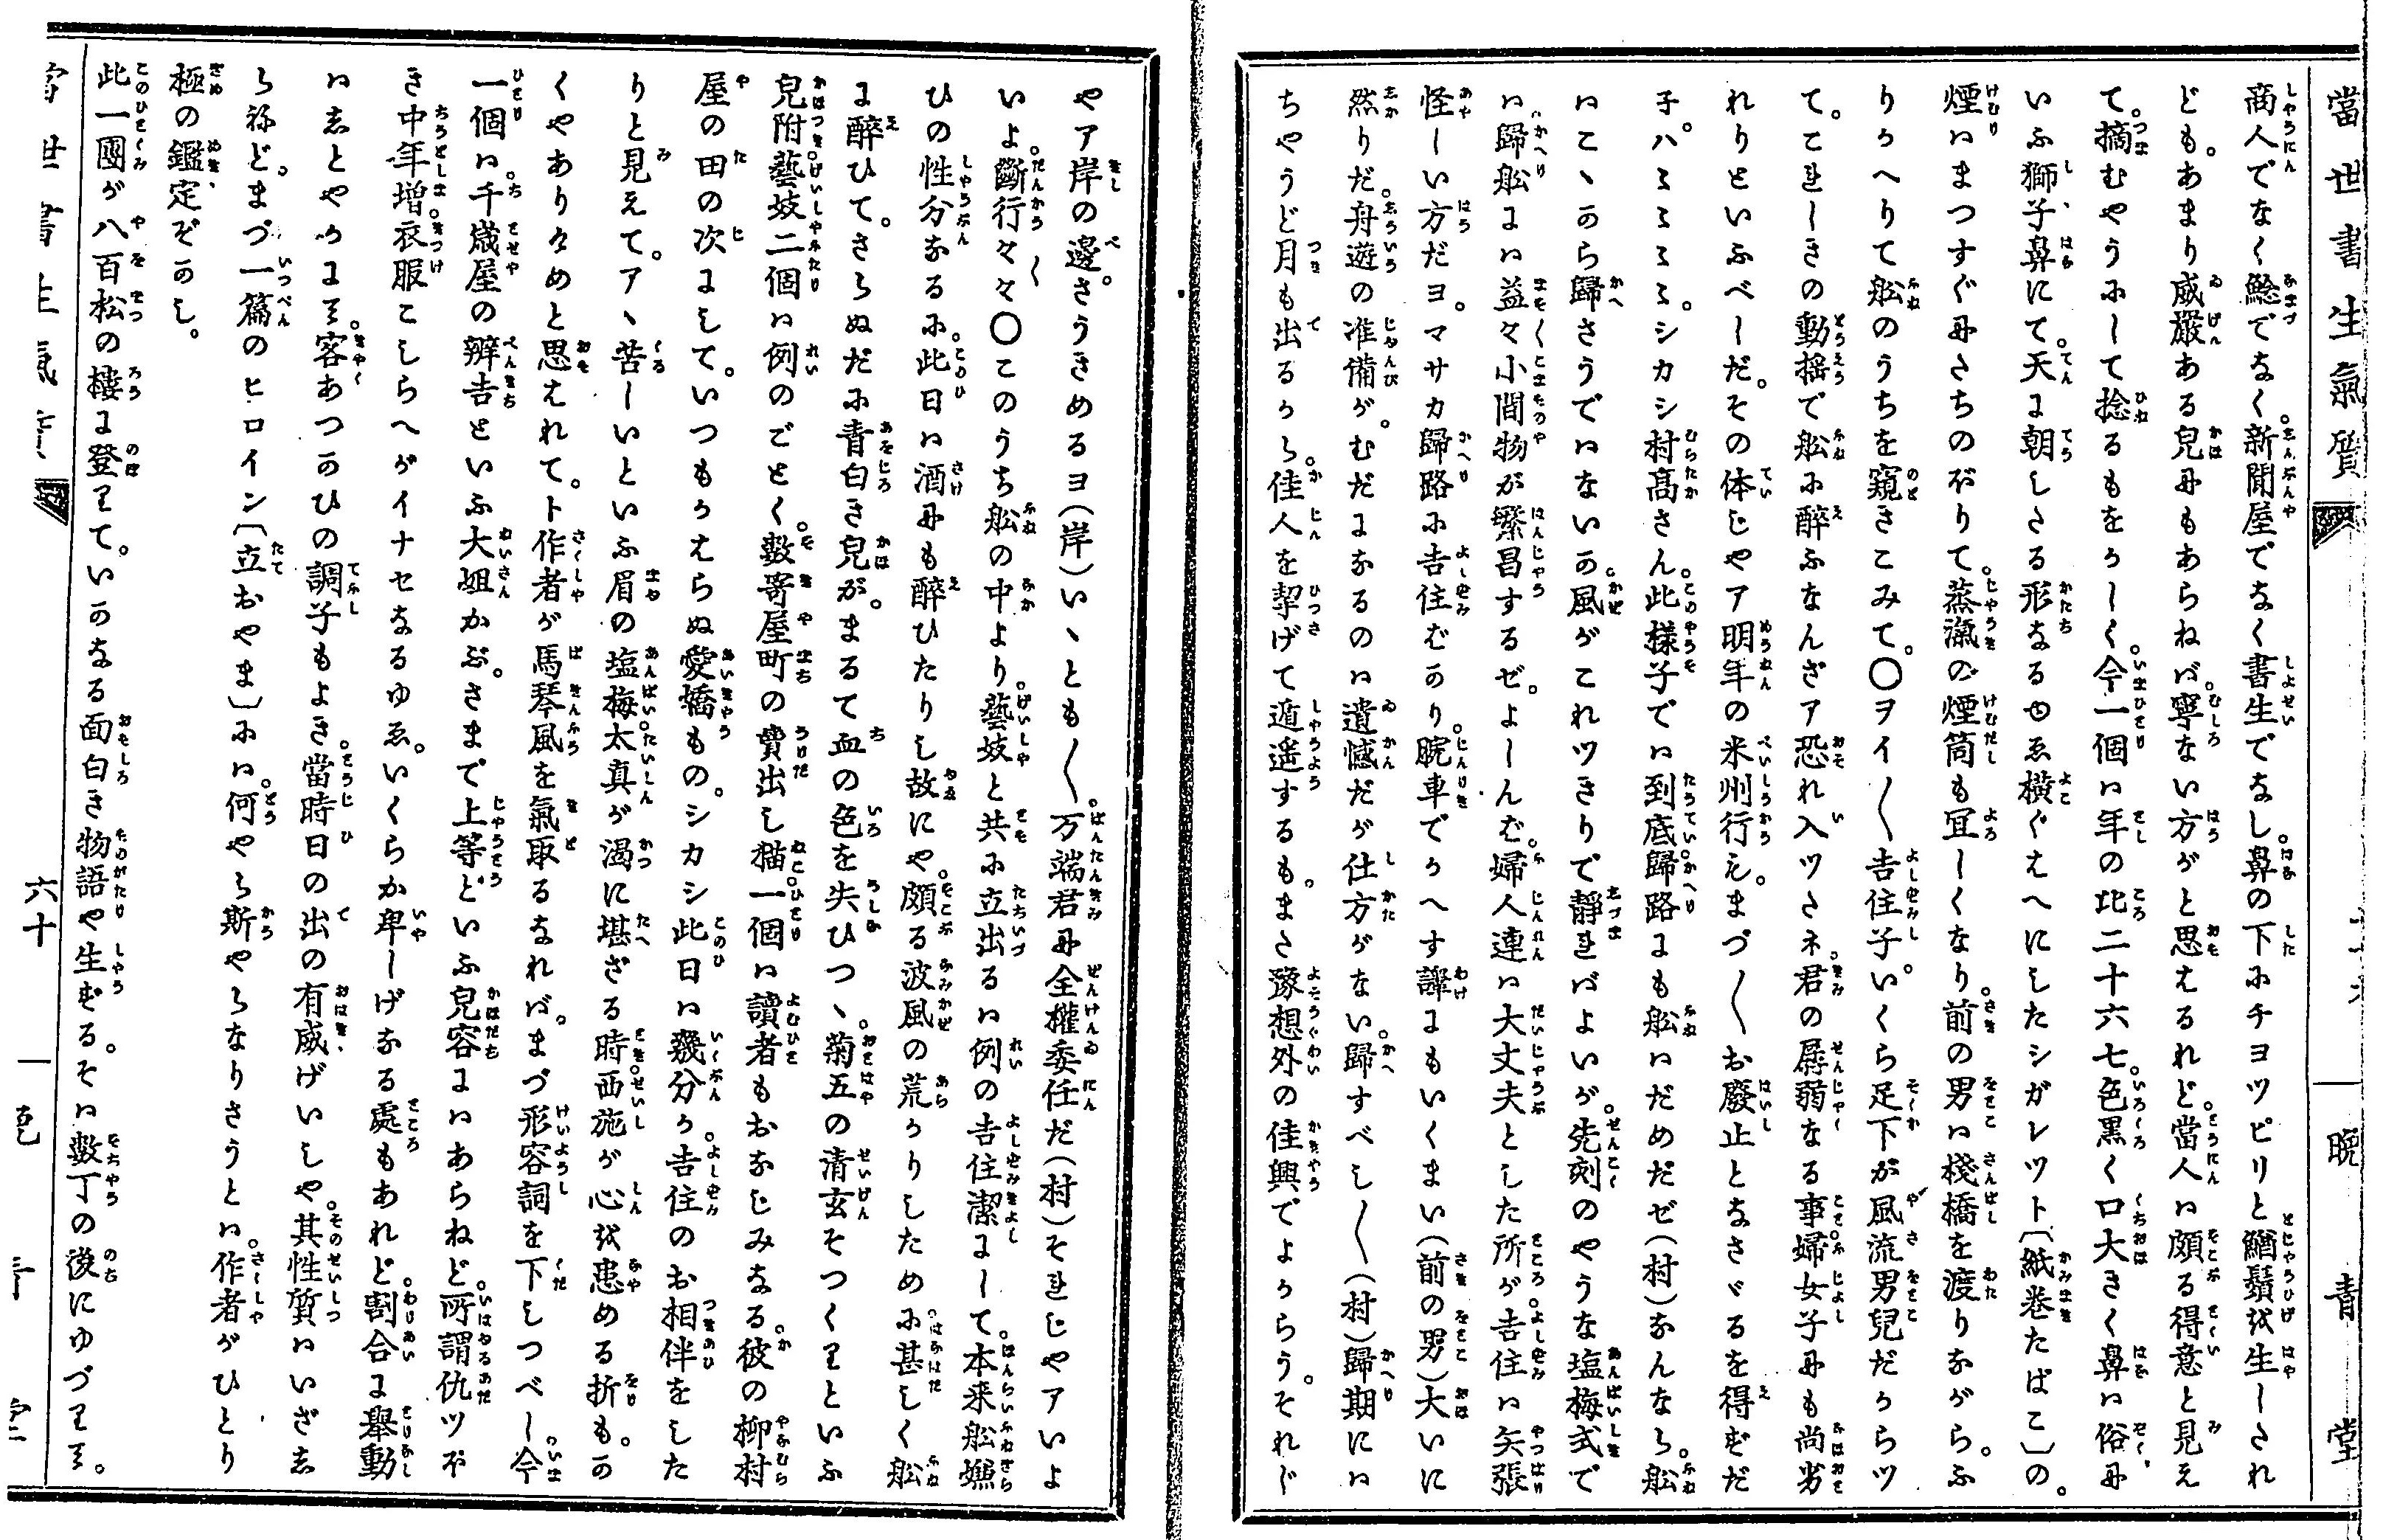 當世書生氣質 晩青堂
商人でなく鯰でなく。新聞屋でなく書生でなし。鼻の下にチヨツピリと鰌鬚を生しされ
ども。あまり威嚴ある皃にもあらねバ。寧ない方がと思はるれど。當人ハ頗る得意と見え
て。摘むやうにして捻るもをかしく。今一個ハ年の比二十六七。色黒く口大きく鼻ハ俗に
いふ獅子鼻にて。天に朝したる形なるゆゑ横ぐはへにしたシガレツト〔紙巻たばこ〕の。
煙ハまつすぐにたちのぼりて。蒸瀛の煙筒も冝しくなり。前の男ハ棧橋を渡りながら。ふ
りかへりて舩のうちを窺きこみて。〇ヲイ〳〵吉住子。いくら足下が風流男兒だからツ
て。これしきの動揺で舩に醉ふなんざア恐れ入ツたネ。君の孱弱なる事婦女子にも尚劣
れりといふべしだ。その体じやア明年の米州行も。まづ〳〵お廢止となさゞるを得ずだ
子。ハヽヽヽヽ。シカシ村髙さん。此様子でハ到底歸路にも舩ハだめだゼ(村)なんなら。舩
ハこゝから歸さうでハないか。風がこれツきりで靜まれバよいが。先刻のやうな塩梅式で
ハ。歸舩にハ益々小間物が繁昌するゼ。よしんバ。婦人連ハ大丈夫とした所が。吉住ハ矢張
怪しい方だヨ。マサカ歸路に吉住ばかり。腕車でかへす譯にもいくまい(前の男)大いに
然りだ。舟遊の准備が。むだになるのハ遺憾だが仕方がない。歸すべし〳〵(村)歸期にハ
ちやうど月も出るから。佳人を挈げて逍遙するも。また豫想外の佳興でよからう。それぢ
やア岸の邊。さうきめるヨ(岸)いゝとも〳〵。万端君に全權委任だ(村)それじやアいよ
いよ。斷行々々〇このうち舩の中より。藝妓と共に立出るハ例の吉住潔にして。本来舩嫌
ひの性分なるに。此日ハ酒にも醉ひたりし故にや。頗る波風の荒かりしために。甚しく舩
に醉ひて。さらぬだに青白き皃が。まるて血の色を失ひつゝ。菊五の清玄そつくりといふ
皃附藝妓二個ハ例のごとく。數寄屋町の賣出し猫。一個ハ讀者もおなじみなる。彼の柳村
屋の田の次にして。いつもかはらぬ愛橋もの。シカシ此日ハ幾分か。吉住のお相伴をした
りと見えて。アヽ苦しいといふ眉の塩梅。太真が渇に堪ざる時。西施が心を患める折も。か
くやありけめと思はれて。ト作者が馬琴風を氣取るなれバ。まづ形容詞を下しつべし。今
一個ハ。千歳屋の辨吉といふ大姐かぶ。さまで上等といふ皃容にハあらねど。所謂仇ツぽ
き中年増。衣服こしらへがイナセなるゆゑ。いくらか卑しげなる處もあれど。割合に舉動
ハしとやかにて。客あつかひの調子もよき。當時日の出の有威げいしや。其性質ハいざし
らねど。まづ一篇のヒロイン〔立おやま〕にハ。何やら斯やらなりさうとハ。作者がひとり
極の鑑定ぞかし。
此一團が八百松の樓に登りて。いかなる面白き物語や生ずる。そハ數丁の後にゆづりて。
當世書生氣質 六十一